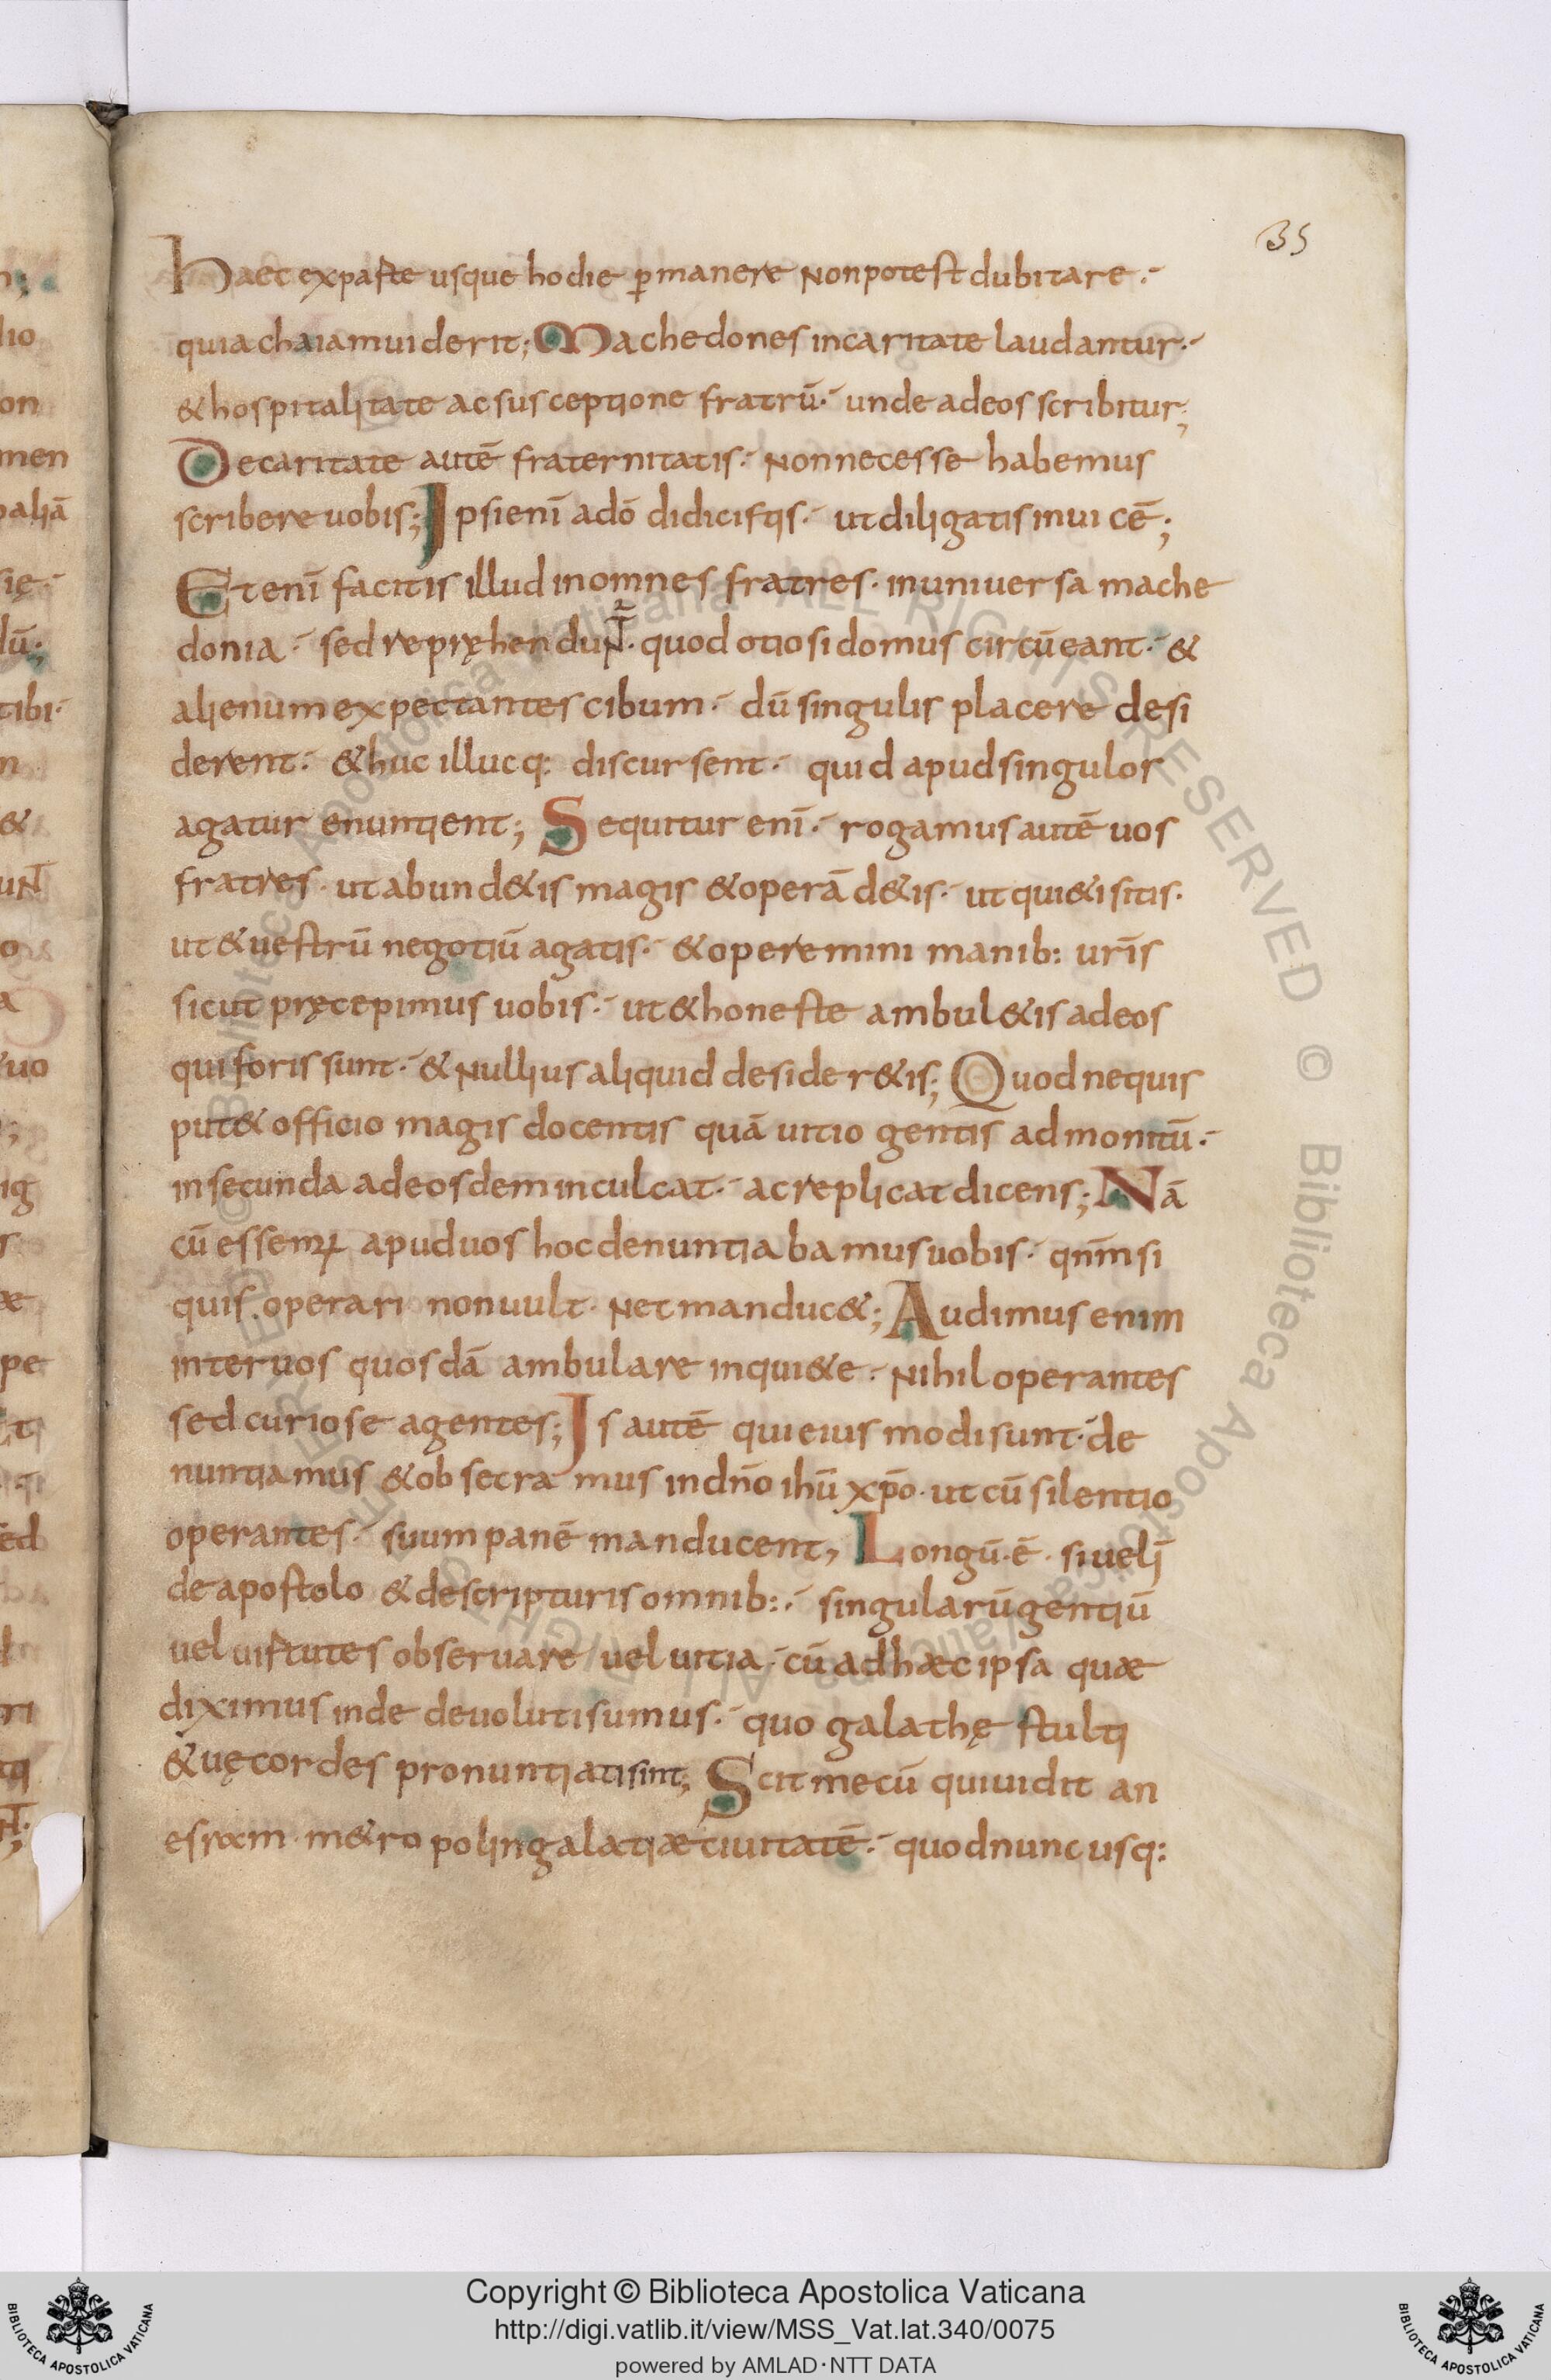 35
Haec ex paste usque hodie ꝑmanere non potest dubitare.
qui achaiam uiderit; Machedones in caritate laudantur.
& hospitalitate ac susceptione fratrū. unde ad eos scribitur;
De caritate autē fraternitatis. non necesse habemus
scribere uobis; Ipsi enī a dō didicistis. ut diligatis inuicē;
Et enī facitis illud in omnes fratres. in uniuersa mache
donia. sed repręhendunt̄. quod otiosi domus circūeant. &
alienum expectantes cibum. dū singulis placere desi
derent. & huc illucq: discursent. quid apud singulos
agatur enuntient; Sequitur enī. rogamus autē uos
fratres. ut abund&is magis & operā d&is. ut qui&i sitis.
ut & uestrū negotiū agatis. & operemini manib: ur̄is
sicut pręcepimus uobis. ut & honeste ambul&is ad eos
qui foris sunt. & nullius aliquid desider&is; Quod ne quis
put& officio magis docentis quā uitio gentis admonitū.
in secunda ad eosdem inculcat. ac replicat dicens; Nā
cū essem; apud uos hoc denuntiabamus uobis. qnm̄ si
quis operari non uult. nec manduc&; Audimus enim
inter uos quosdā ambulare inqui&e. nihil operantes
sed curiose agentes; Is autē qui eius modi sunt. de
nuntiamus & obsecramus in dn̄o ihū xp̄o. ut cū silentio
operantes. suum panē manducent, Longū. ē. si uelī
de apostolo & de scripturis omnib:. singularū gentiū
uel uirtutes obseruare uel uitia. cū ad hæc ipsa quæ
diximus inde deuoluti sumus. quo galathę stulti
& uęcordes pronuntiati sint; Scit mecū qui uidit an
m&ropolin galatiæ ciuitatē. quod nunc usq:
Copyright © Biblioteca Apostolica Vaticana
http://digi.vatlib.it/view/MSS_Vat.lat.340/0075
powered by AMLAD·NTT DATA